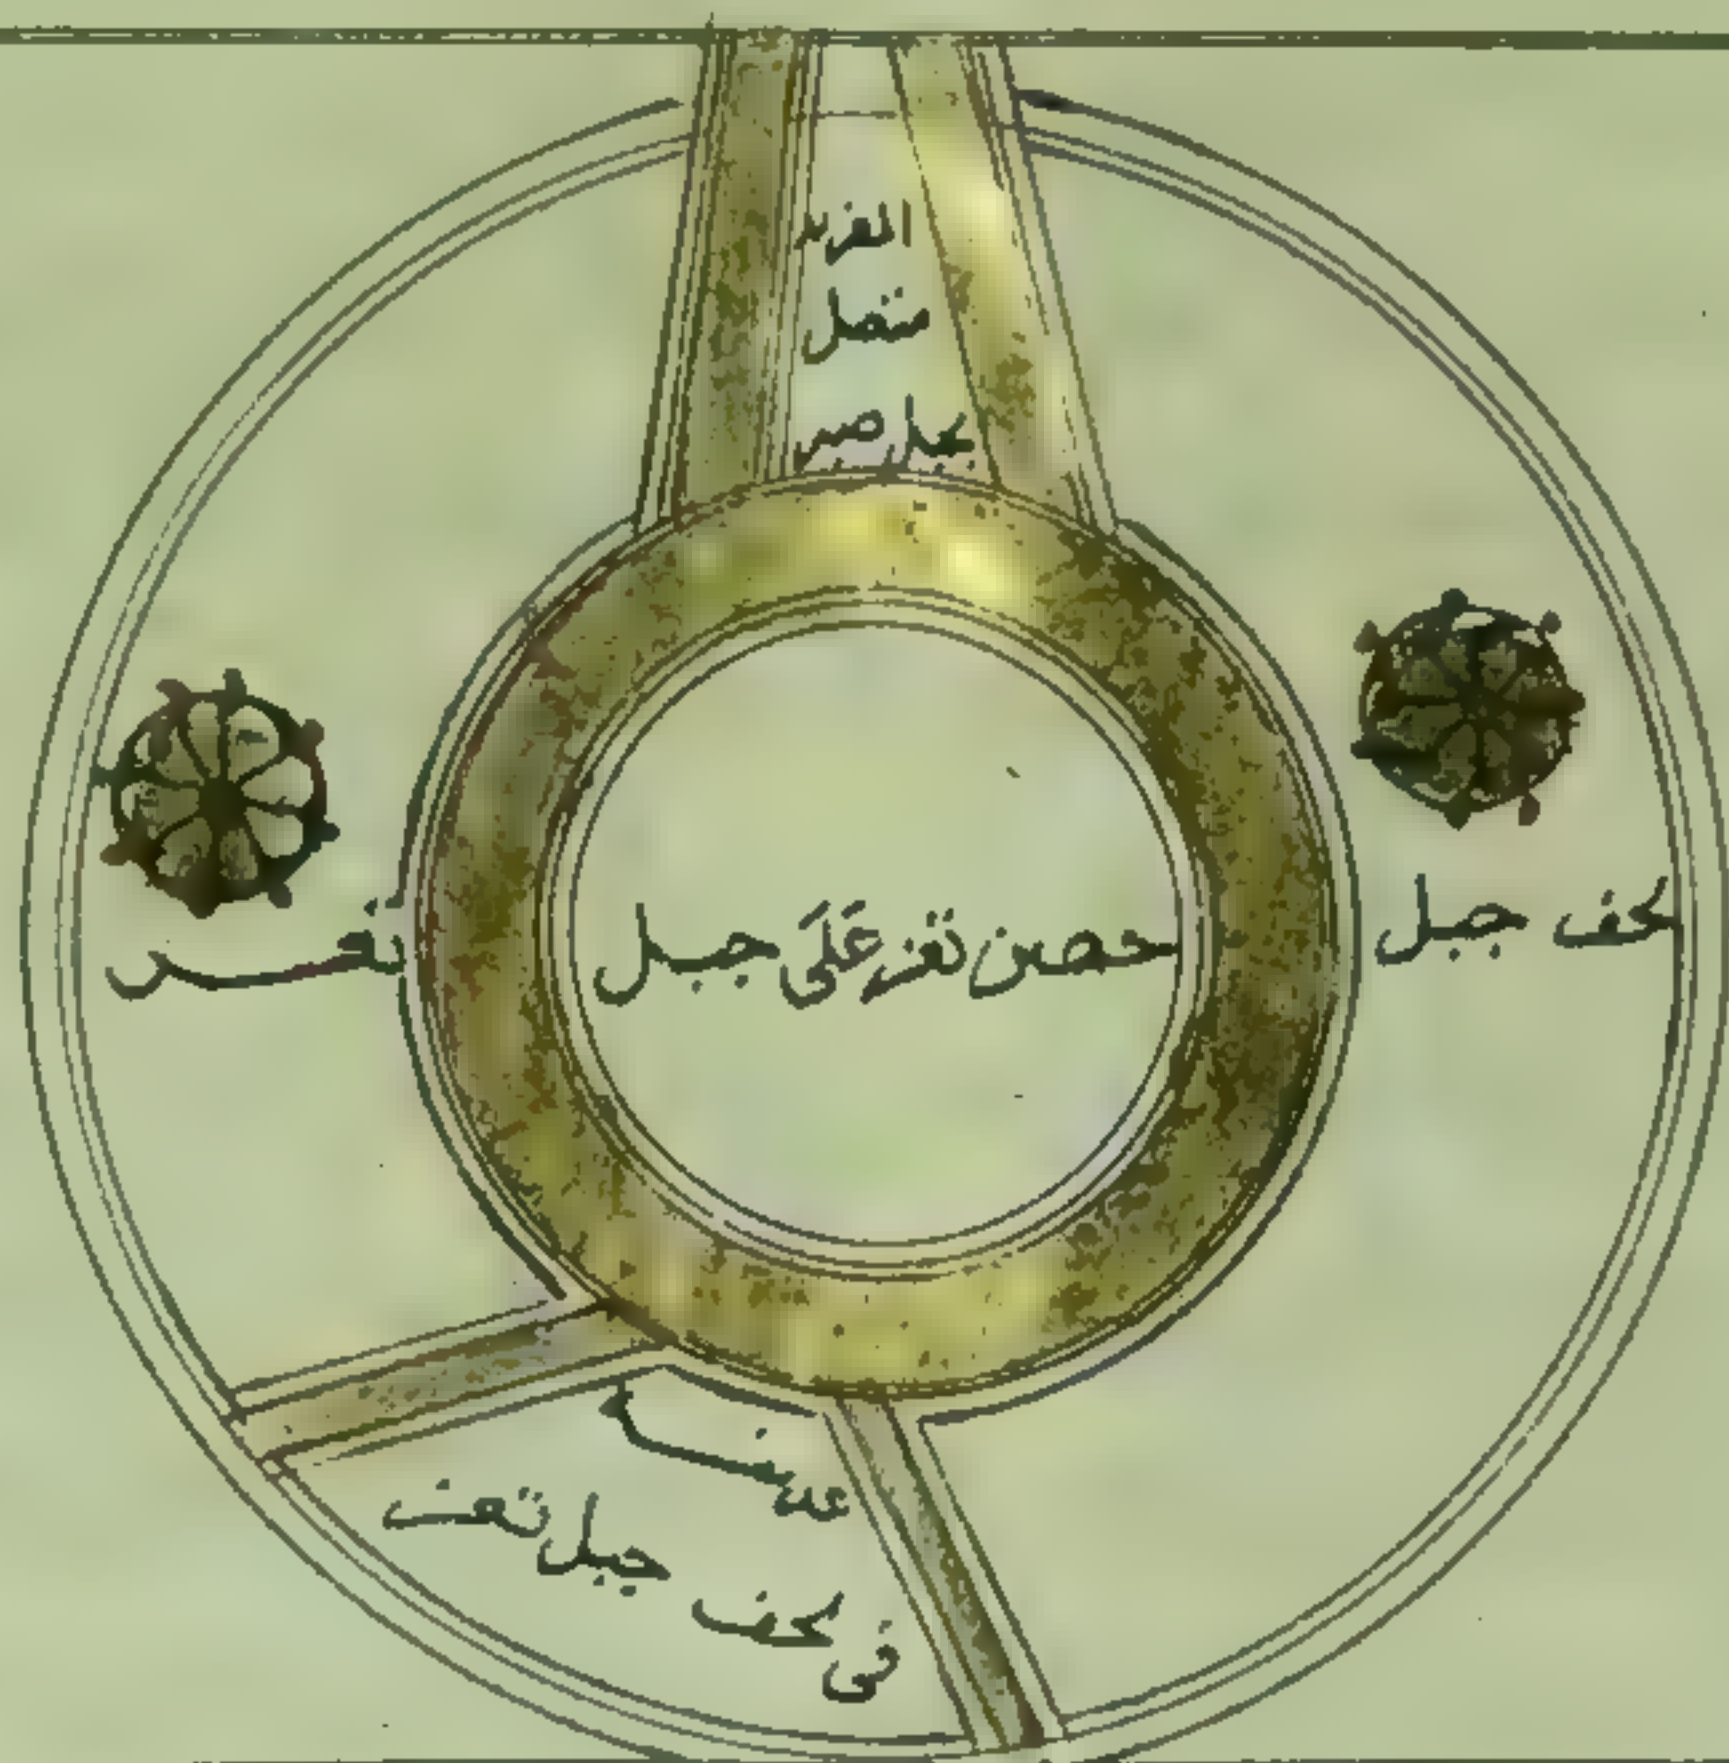 المغربه
متصل
بجبل صبر
لحف جبل
حصن تعز على جبل
تعز
عدينة
في لحف جبل تعز